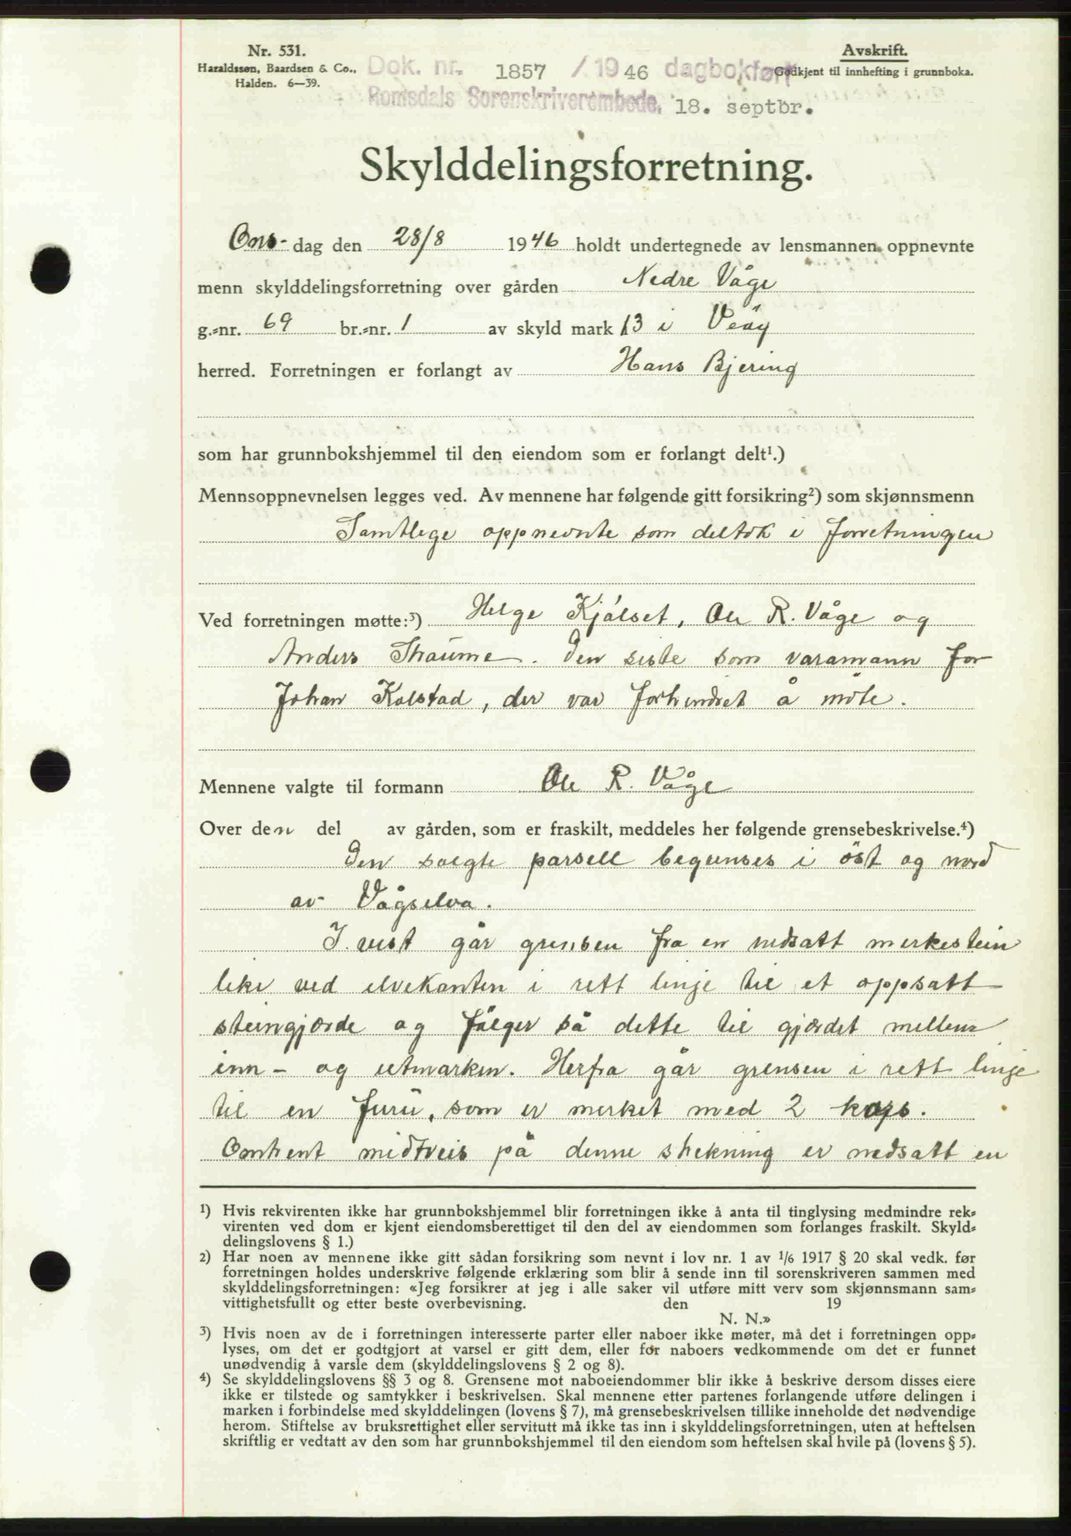 Nr. 531.
Haraldssøn, Baardsen & Co.,
Halden. 6—39.
Avskrift.
Godkjent til innhefting i grunnboka.
Dok. nr. 1857 / 1946 dagbokført
Romsdals Sorenskriverembede, 18. septbr.
Skylddelingsforretning.
Ons- dag den 28/8 1946 holdt undertegnede av lensmannen oppnevnte
menn skylddelingsforretning over gården Nedre Våge
g.-nr. 69 br.-nr. 1 av skyld mark 13 i Veøy
herred. Forretningen er forlangt av Hans Bjering
som har grunnbokshjemmel til den eiendom som er forlangt delt¹.)
Mennsoppnevnelsen legges ved. Av mennene har følgende gitt forsikring²) som skjønnsmenn
Samtlige oppnevnte som deltok i forretningen
Ved forretningen møtte:³) Helge Kjølset, Ole R. Våge og
Anders Thaume. Den siste som varamann for
Johan Kolstad, der var forhindret å møte.
Mennene valgte til formann Ole R. Våge
Over den del av gården, som er fraskilt, meddeles her følgende grensebeskrivelse.⁴)
Den solgte parsell begrenses i øst og nord
av Vågselva.
I vest går grensen fra en nedsatt merkestein
like ved elvekanten i rett linje til et oppsatt
steingjærde og følger så dette til gjærdet mellem
inn- og utmarken. Herfra går grensen i rett linje
til en furu, som er merket med 2 kors.
Omtrent midtveis på denne strekning er nedsatt en
¹) Hvis rekvirenten ikke har grunnbokshjemmel blir forretningen ikke å anta til tinglysing medmindre rek-
virenten ved dom er kjent eiendomsberettiget til den del av eiendommen som forlanges fraskilt. Skyld-
delingslovens § 1.)
²) Har noen av mennene ikke gitt sådan forsikring som nevnt i lov nr. 1 av ¹/₆ 1917 § 20 skal vedk. før
forretningen holdes underskrive følgende erklæring som blir å sende inn til sorenskriveren sammen med
skylddelingsforretningen: «Jeg forsikrer at jeg i alle saker vil utføre mitt verv som skjønnsmann sam-
vittighetsfullt og etter beste overbevisning. den 19
N. N.»
³) Hvis noen av de i forretningen interesserte parter eller naboer ikke møter, må det i forretningen opp-
lyses, om det er godtgjort at varsel er gitt dem, eller for naboers vedkommende om det er funnet
unødvendig å varsle dem (skylddelingslovens § 2 og 8).
⁴) Se skylddelingslovens §§ 3 og 8. Grensene mot naboeiendommer blir ikke å beskrive dersom disses eiere
ikke er tilstede og samtykker i beskrivelsen. Skal mennene etter partenes forlangende utføre delingen i
marken i forbindelse med skylddelingen (lovens § 7), må grensebeskrivelsen tillike inneholde det nødvendige
herom. Stiftelse av bruksrettighet eller servitutt må ikke tas inn i skylddelingsforretningen, uten at heftelsen
skriftlig er vedtatt av den som har grunnbokshjemmel til den eiendom som heftelsen skal hvile på (lovens § 5).